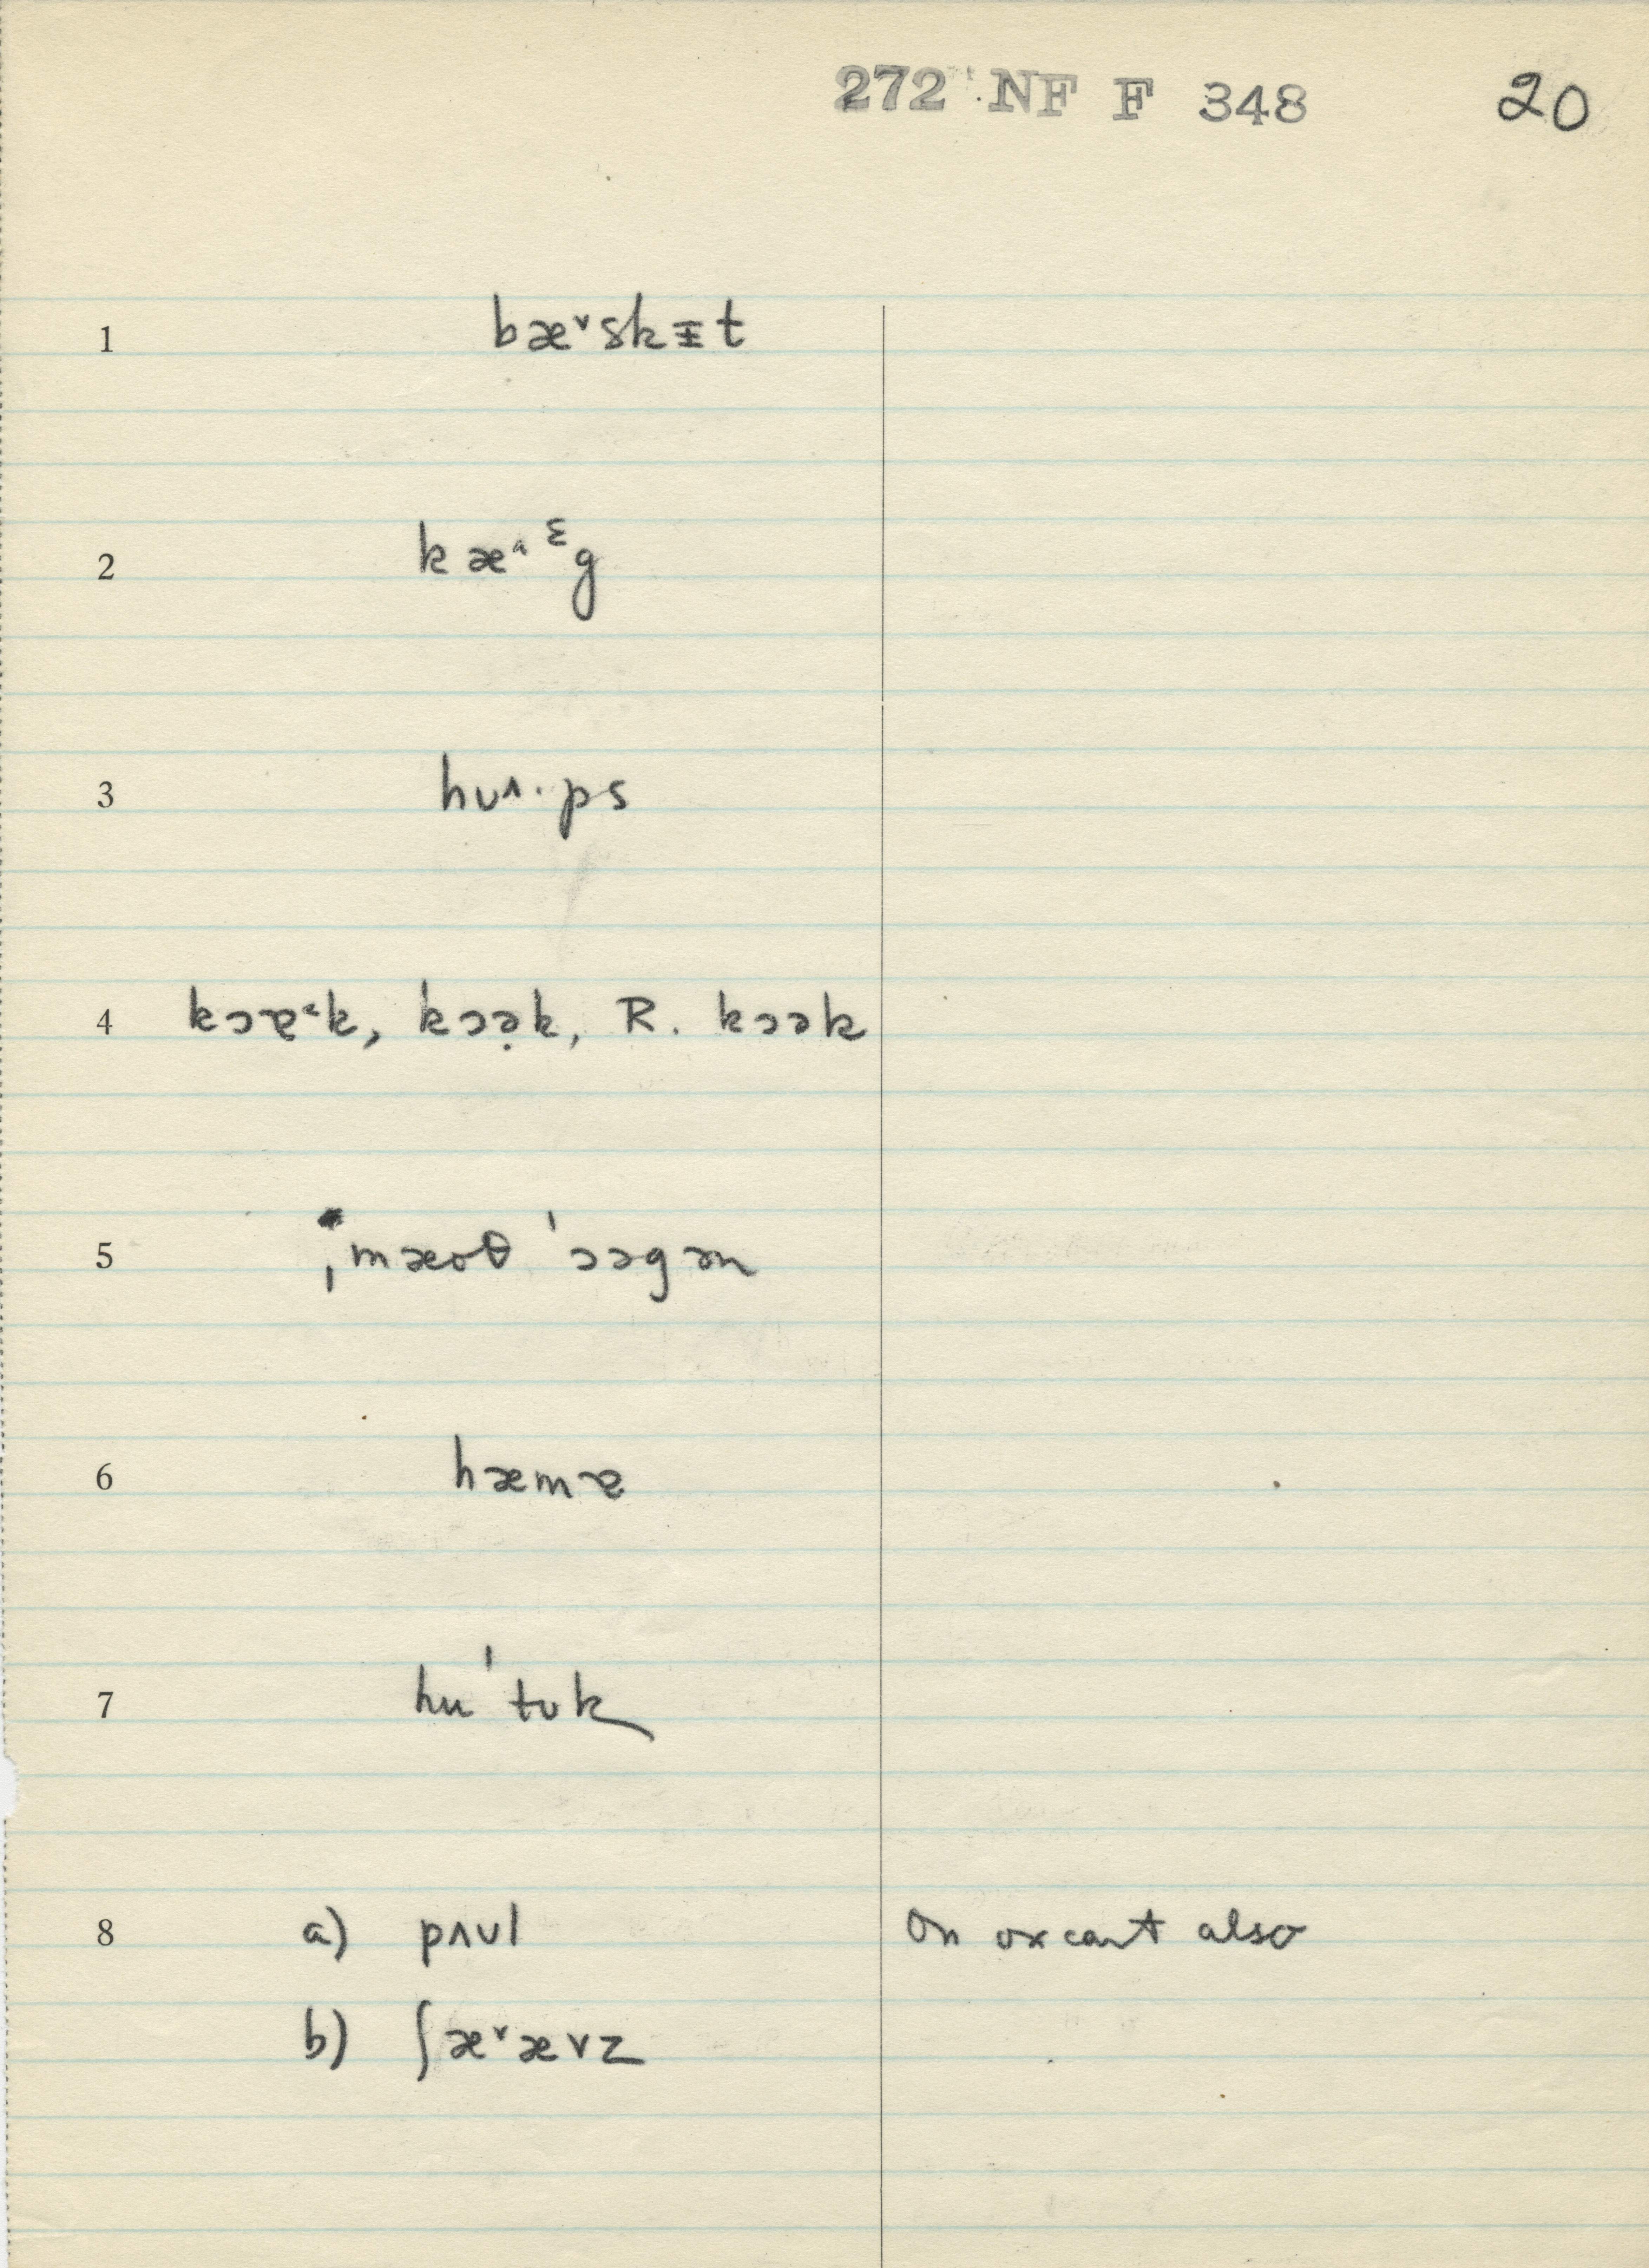 272 NF F 348 20
1 bæ˅skɪ̵t
2 kæ˄ᵋg
3 hʊ˄·ps
4 kɔɐ˂k, k̍ɔə̣k, R. kɔək
5 ˌmæoθ ˈɔəgən
6 hæmɐ
7 huˈtʊk
8 a) pʌʊl On oxcart also
b) ʃæ˅ævz